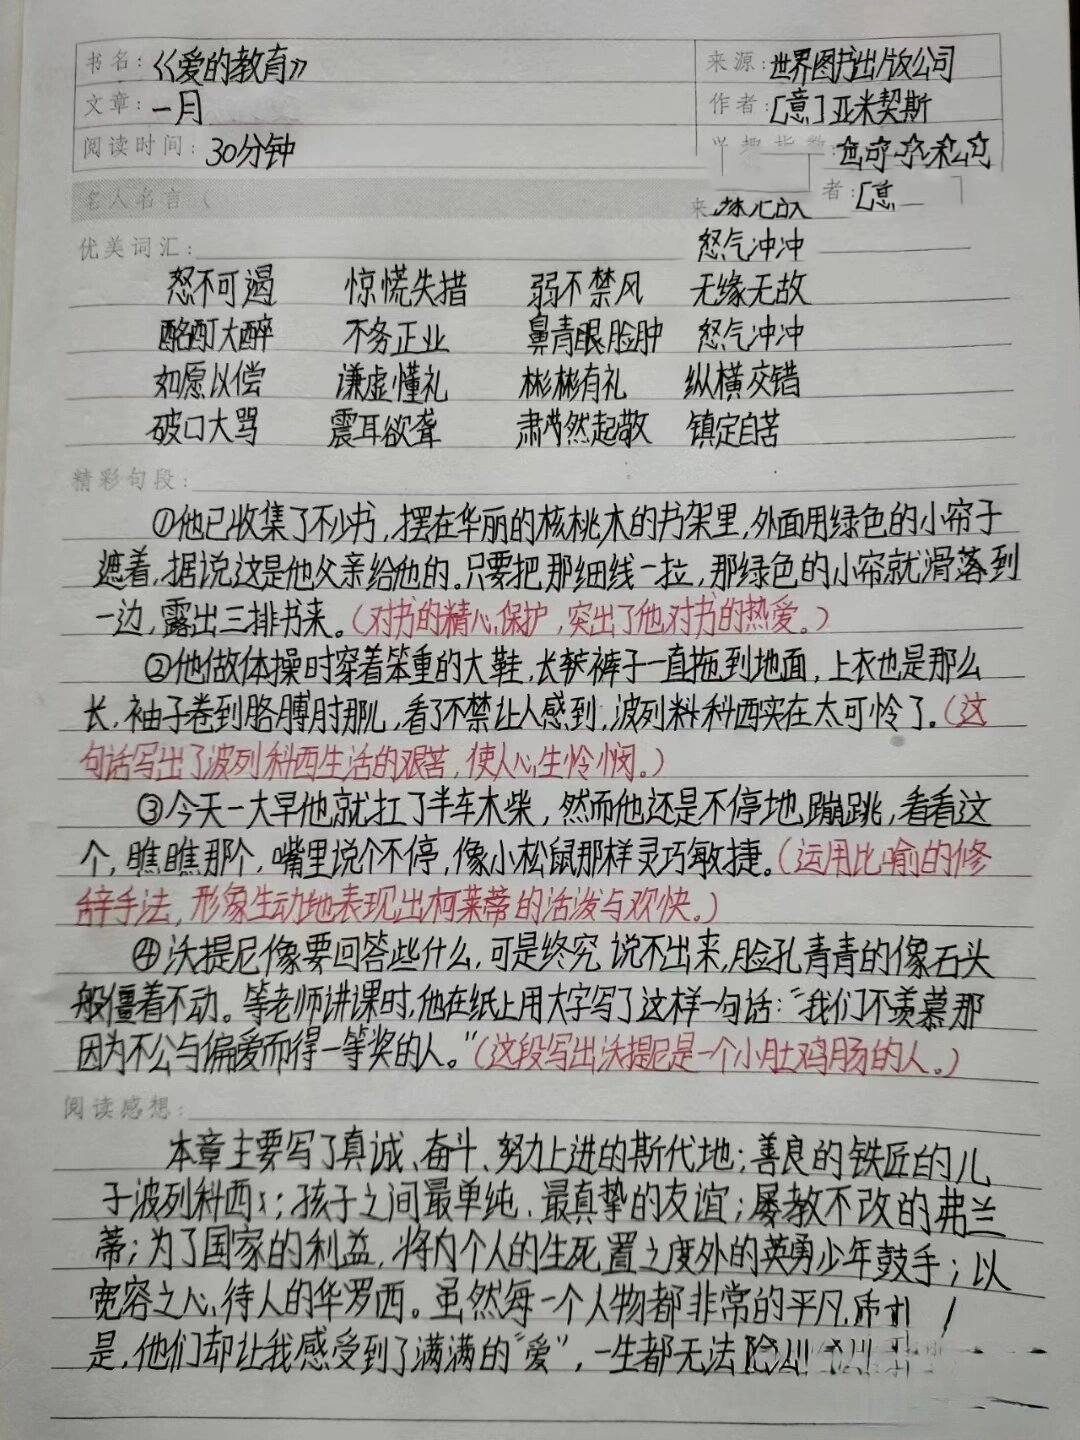 书名:《爱的教育》 来源:世界图书出版公司
文章:一月 作者:[意]亚米契斯
阅读时间:30分钟 兴趣指数:
名人名言( 者:[意
优美词汇: 怒气冲冲
怒不可遏 惊慌失措 弱不禁风 无缘无故
酩酊大醉 不务正业 鼻青眼脸肿 怒气冲冲
如愿以偿 谦虚懂礼 彬彬有礼 纵横交错
破口大骂 震耳欲聋 肃然起敬 镇定自若
精彩句段:
①他已收集了不少书,摆在华丽的核桃木的书架里,外面用绿色的小帘子
遮着,据说这是他父亲给他的。只要把那细线一拉,那绿色的小帘就滑落到
一边,露出三排书来。(对书的精心保护,突出了他对书的热爱。)
②他做体操时穿着笨重的大鞋,长裤子一直拖到地面,上衣也是那么
长,袖子卷到胳膊肘那儿,看了不禁让人感到,波列科西实在太可怜了。(这
句话写出了波列科西生活的艰苦,使人心生怜悯。)
③今天一大早他就扛了半车木柴,然而他还是不停地蹦跳,看看这
个,瞧瞧那个,嘴里说个不停,像小松鼠那样灵巧敏捷。(运用比喻的修
辞手法,形象生动地表现出柯莱蒂的活泼与欢快。)
④沃提尼像要回答些什么,可是终究说不出来,脸孔青青的像石头
般僵着不动。等老师讲课时,他在纸上用大字写了这样一句话:“我们不羡慕那
因为不公与偏爱而得一等奖的人。”(这段写出沃提尼是一个小肚鸡肠的人。)
阅读感想:
本章主要写了真诚、奋斗、努力上进的斯代地;善良的铁匠的儿
子波列科西;孩子之间最单纯、最真挚的友谊;屡教不改的弗兰
蒂;为了国家的利益,将个人的生死置之度外的英勇少年鼓手;以
宽容之心待人的华罗西。虽然每一个人物都非常的平凡,
是,他们却让我感受到了满满的“爱”,一生都无法